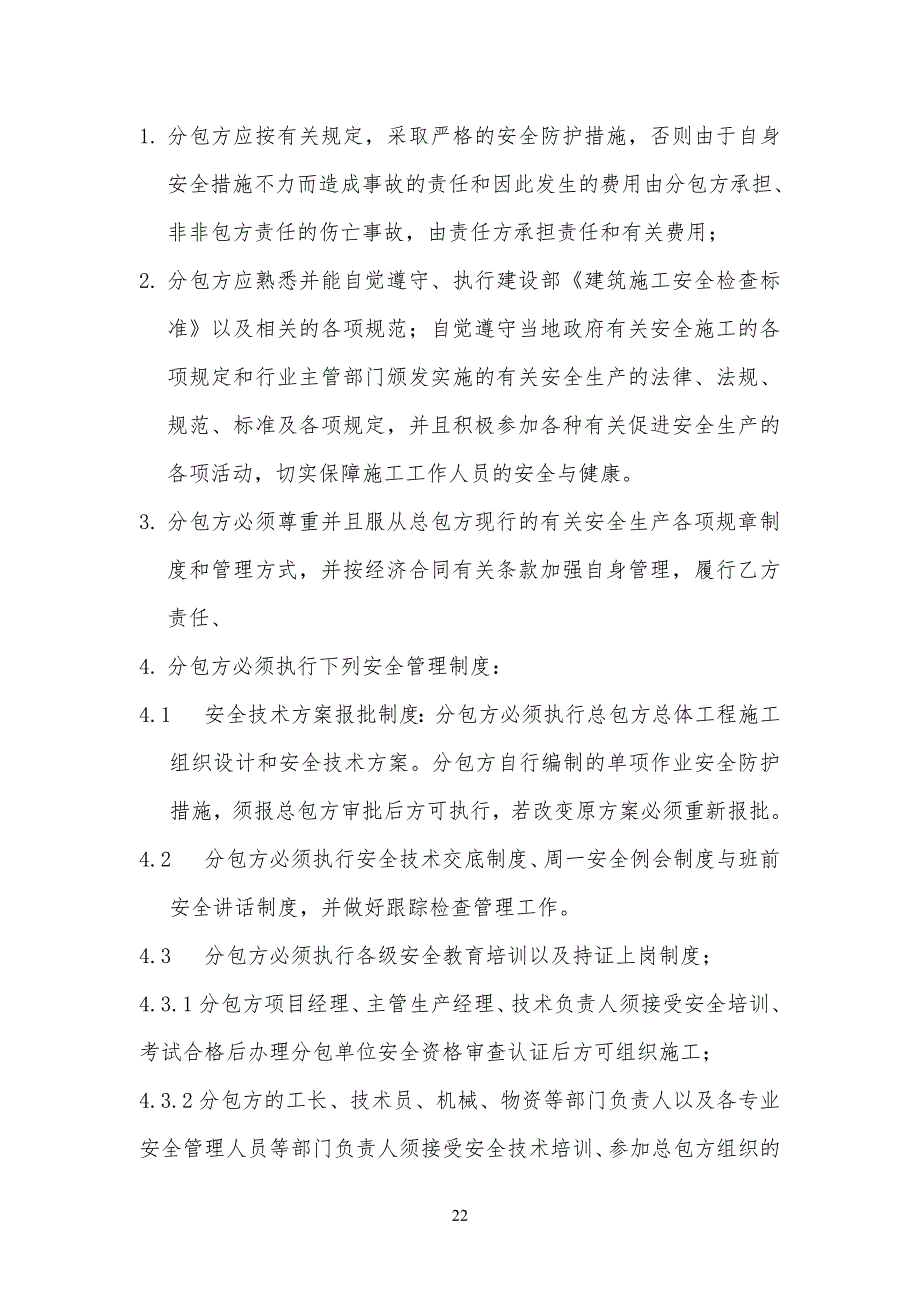 1. 分包方应按有关规定，采取严格的安全防护措施，否则由于自身
安全措施不力而造成事故的责任和因此发生的费用由分包方承担、
非非包方责任的伤亡事故，由责任方承担责任和有关费用；
2. 分包方应熟悉并能自觉遵守、执行建设部《建筑施工安全检查标
准》以及相关的各项规范；自觉遵守当地政府有关安全施工的各
项规定和行业主管部门颁发实施的有关安全生产的法律、法规、
规范、标准及各项规定，并且积极参加各种有关促进安全生产的
各项活动，切实保障施工工作人员的安全与健康。
3. 分包方必须尊重并且服从总包方现行的有关安全生产各项规章制
度和管理方式，并按经济合同有关条款加强自身管理，履行乙方
责任、
4. 分包方必须执行下列安全管理制度：
4.1 安全技术方案报批制度：分包方必须执行总包方总体工程施工
组织设计和安全技术方案。分包方自行编制的单项作业安全防护
措施，须报总包方审批后方可执行，若改变原方案必须重新报批。
4.2 分包方必须执行安全技术交底制度、周一安全例会制度与班前
安全讲话制度，并做好跟踪检查管理工作。
4.3 分包方必须执行各级安全教育培训以及持证上岗制度；
4.3.1分包方项目经理、主管生产经理、技术负责人须接受安全培训、
考试合格后办理分包单位安全资格审查认证后方可组织施工；
4.3.2分包方的工长、技术员、机械、物资等部门负责人以及各专业
安全管理人员等部门负责人须接受安全技术培训、参加总包方组织的
22